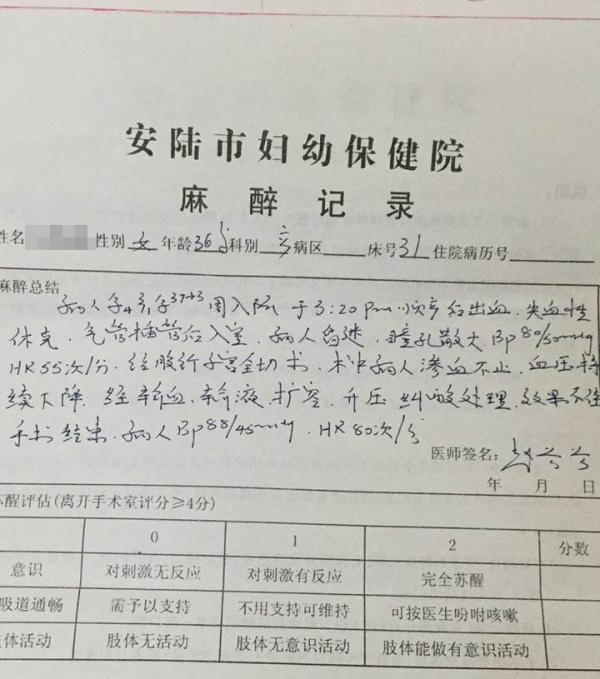 安陆市妇幼保健院
麻醉记录
姓名 性别 女 年龄 36岁 科别 产 病区 床号 31 住院病历号
麻醉总结
病人孕4产1孕37+3周入院 于3:20pm顺产后出血.失血性
休克.气管插管后入室.病人昏迷.瞳孔散大.Bp80/50mmHg
HR55次/分.经腹行子宫全切术.术中病人渗血不止.血压持
续下降.经输血.输液.扩容.升压纠酸处理.效果不佳
手术结束.病人Bp88/45mmHg.HR80次/分
医师签名:
年 月 日
苏醒评估(离开手术室评分≥4分)
0 1 2 分数
意识 对刺激无反应 对刺激有反应 完全苏醒
吸道通畅 需予以支持 不用支持可维持 可按医生吩咐咳嗽
肢体活动 肢体无活动 肢体无意识活动 肢体能做有意识活动